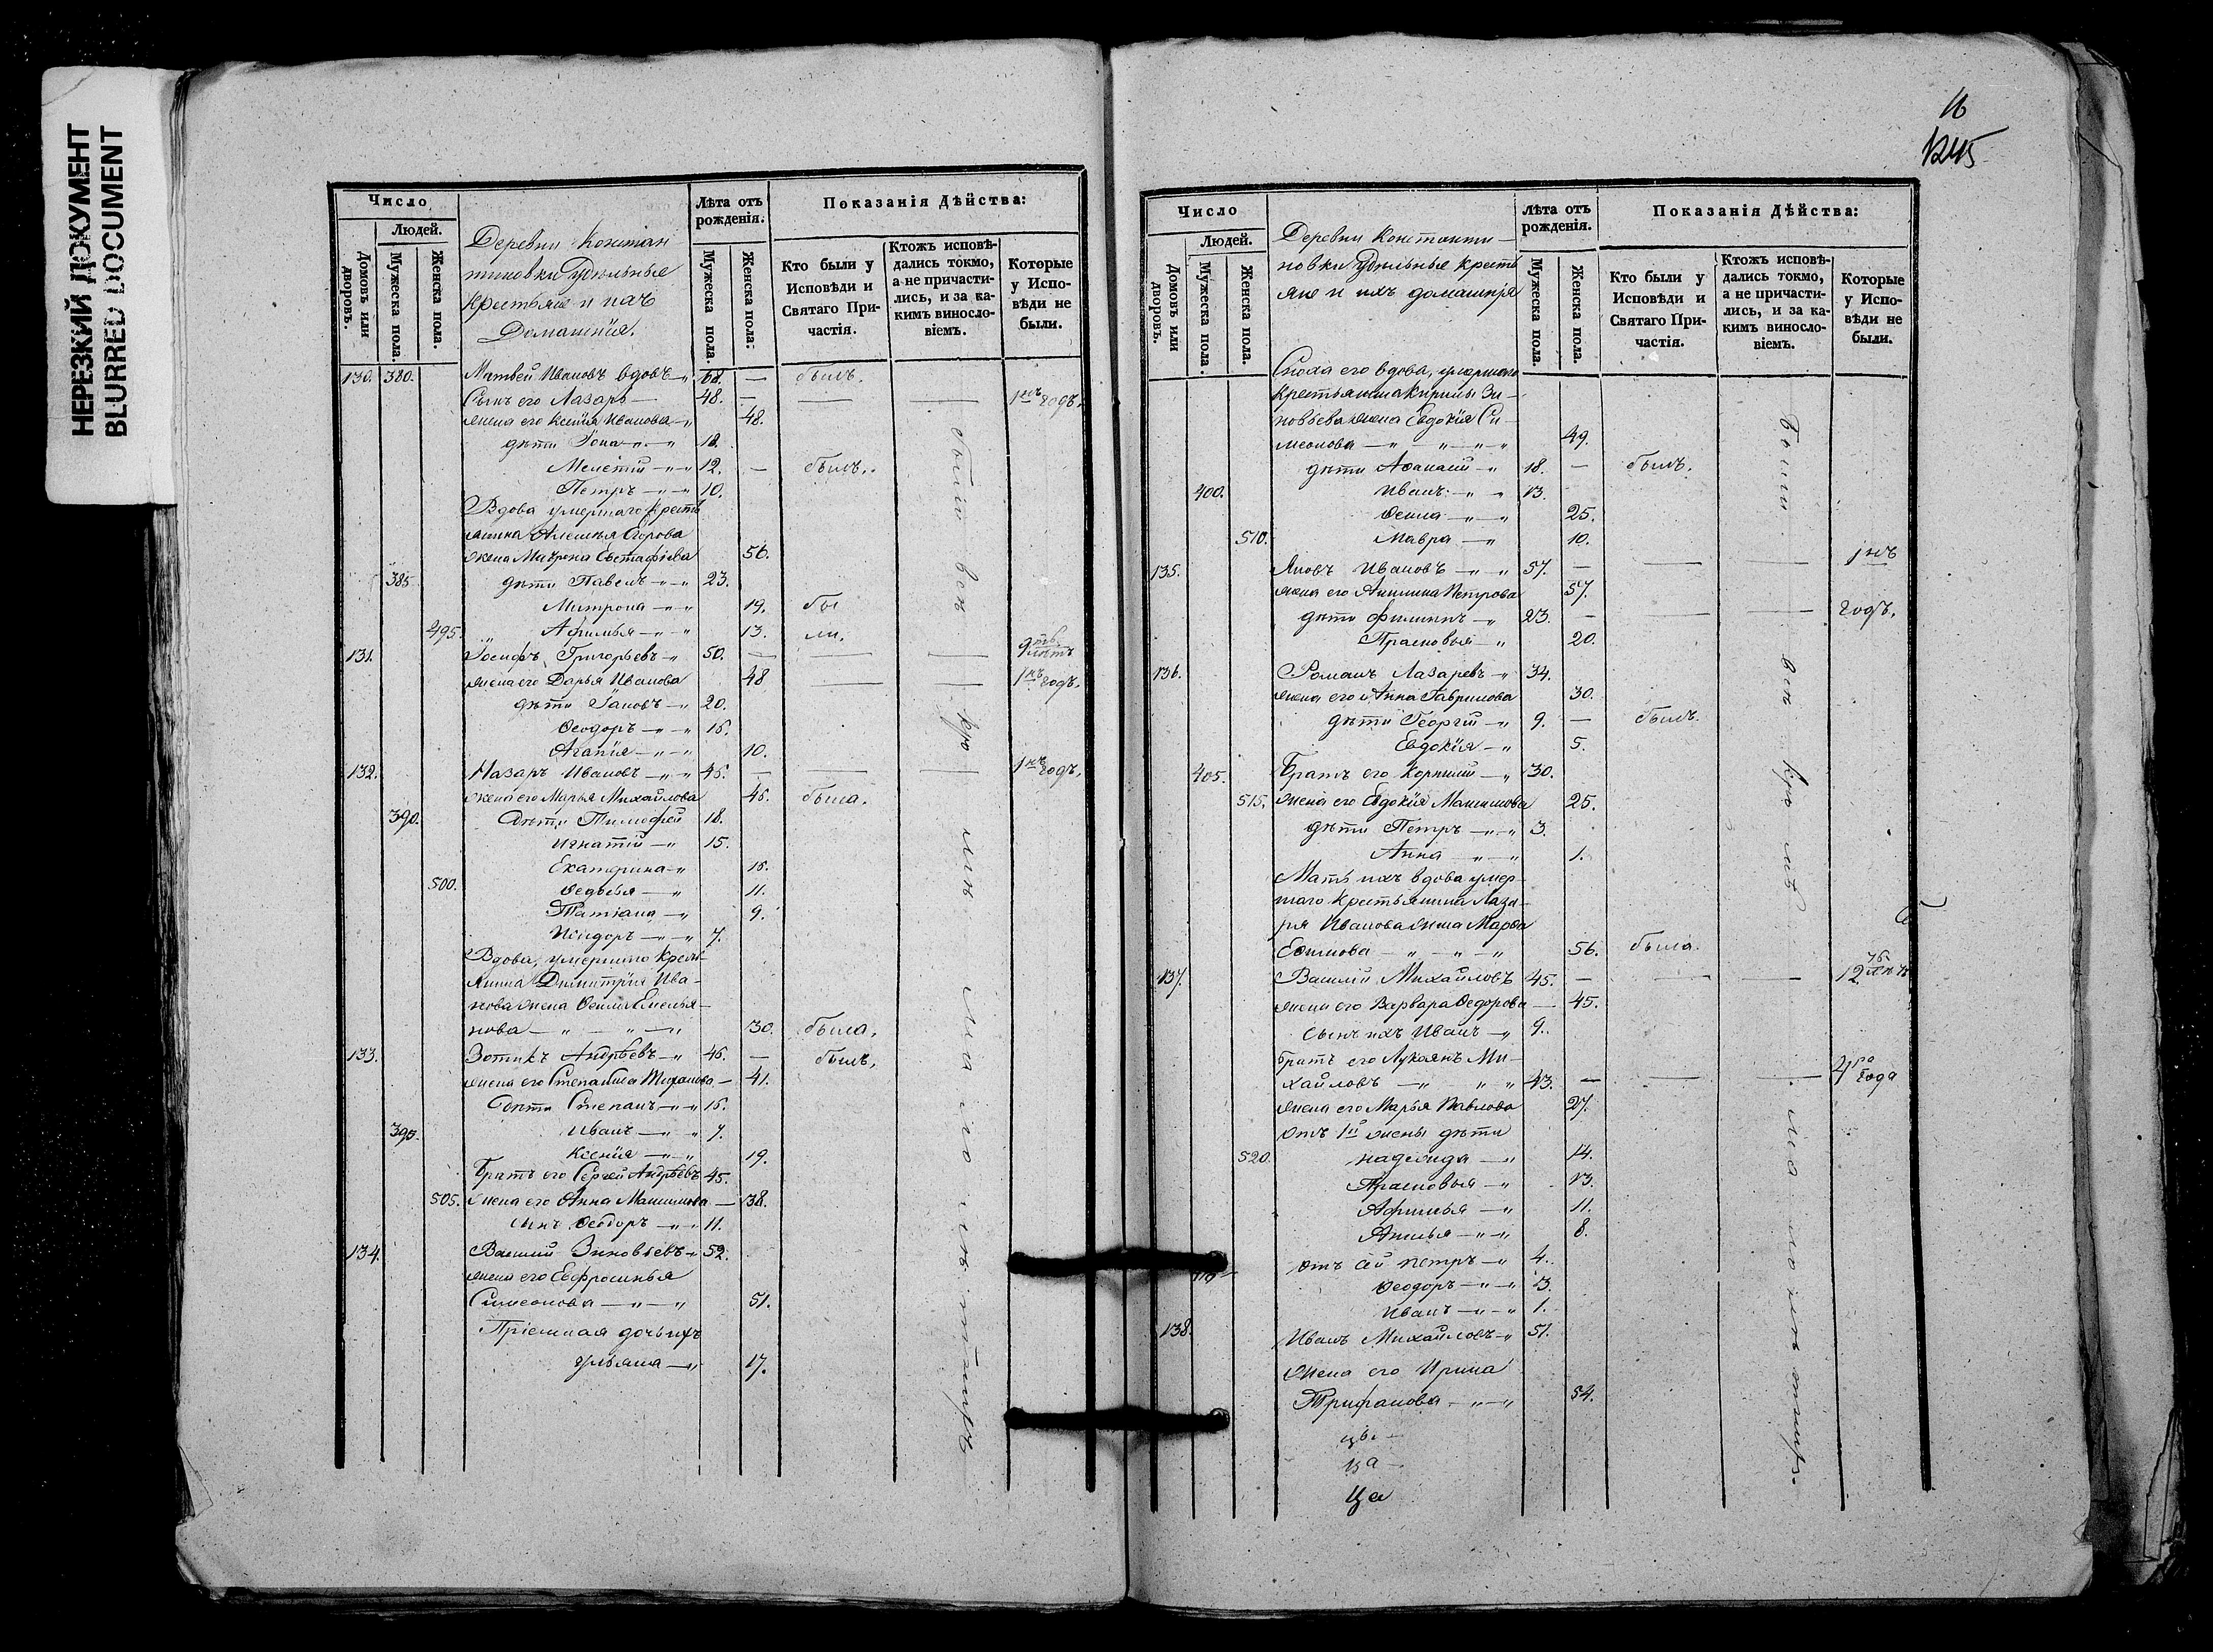 НЕРЕЗКИЙ ДОКУМЕНТ
BLURRED DOCUMENT
Число
Людей.
Домовъ или дворовъ.
Мужеска пола.
Женска пола.
Деревни Констан
тиновки Удѣльные
крестьяне и ихъ
Домашнія.
Лѣта отъ рожденія.
Мужеска пола.
Женска пола.
Показанія Дѣйства:
Кто были у Исповѣди и Святаго Причастія.
Ктожъ исповѣдались токмо, а не причастились, и за какимъ винословіемъ.
Которые у Исповѣди не были.
130. 380. Матвей Ивановъ вдовъ 68. — былъ.
Сынъ его Лазарь 48. — 1нъ годъ.
жена его Ксенія Иванова 48.
дѣти Іона 18.
Мелетій 12. — былъ.
Петръ 10.
Вдова умершаго кресть
янина Егорова
жена Матрона Евстафіева 56.
385. дѣти Павелъ 23.
Матрона 19. бы
495. Афимья 13. ли.
131. Іосифъ Григорьевъ 50. — 9ть лѣтъ
жена его Дарья Иванова 48 1нъ годъ.
дѣти Іаковъ 20.
Ѳеодоръ 15.
Агапія 10.
132. Назаръ Ивановъ 45. — 1нъ годъ.
жена его Марья Михайлова 45. была.
390. Дѣти Тимофей 18.
Игнатій 15.
Екатерина 15.
500. Ѳедосья 11.
Татіана 9.
Исидоръ 7.
Вдова, умершаго крест
янина Димитрія Ива-
нова жена Емелья-
нова 30. была.
133. Зотикъ Андреевъ 46. — былъ.
жена его Степанида 41.
Дѣти Степанъ 15.
395. Иванъ 7.
Ксенія 19.
Братъ его Сергей Андреевъ 45.
505. жена его Анна Максимова — 38.
сынъ Ѳеодоръ 11.
134. Василій Зиновьевъ 52.
жена его Евфросинья
Симеонова 51.
Пріемная дочь ихъ
Ульяна 17.
16
1245
Число
Людей.
Домовъ или дворовъ.
Мужеска пола.
Женска пола.
Деревни Константи-
новки Удѣльные кресть
яне и ихъ домашнія
Лѣта отъ рожденія.
Мужеска пола.
Женска пола.
Показанія Дѣйства:
Кто были у Исповѣди и Святаго Причастія.
Ктожъ исповѣдались токмо, а не причастились, и за какимъ винословіемъ.
Которые у Исповѣди не были.
Сноха его вдова, умершаго
крестьянина Кирилы Зи-
новьева жена Евдокія Си-
меонова 49.
дѣти Аѳанасій 18. — былъ.
400. Иванъ 13.
Ѳекла 25.
510. Мавра 10.
135. Яковъ Ивановъ 57. — 1нъ
жена его Акилина Петрова 57.
дѣти Филиппъ 23. — годъ.
Прасковья 20.
136. Романъ Лазаревъ 34.
жена его Анна Гаврилова 30.
дѣти Георгій 9. — былъ.
Евдокія 5.
405. Братъ его Корнилій 30.
515. жена его Евдокія Максимова 25.
дѣти Петръ 3.
Анна 1.
Мать ихъ вдова умер-
шаго крестьянина Лаза-
ря Иванова жена Марѳа
Ефимова 56. была.
137. Василій Михайловъ 45. — 12ть лѣтъ
жена его Варвара Ѳедорова — 45.
сынъ ихъ Иванъ 9.
Братъ его Лукаянъ Ми-
хайловъ 43. — 4ра года
жена его Марья Павлова 27.
Отъ 1й жены дѣти
520. Надежда 14.
Прасковья 13.
Афимья 11.
Акилья 8.
Отъ Петръ 4.
Ѳеодоръ 3.
Иванъ 1.
138. Иванъ Михайловъ 51.
Жена его Ирина
Трифанова 54.